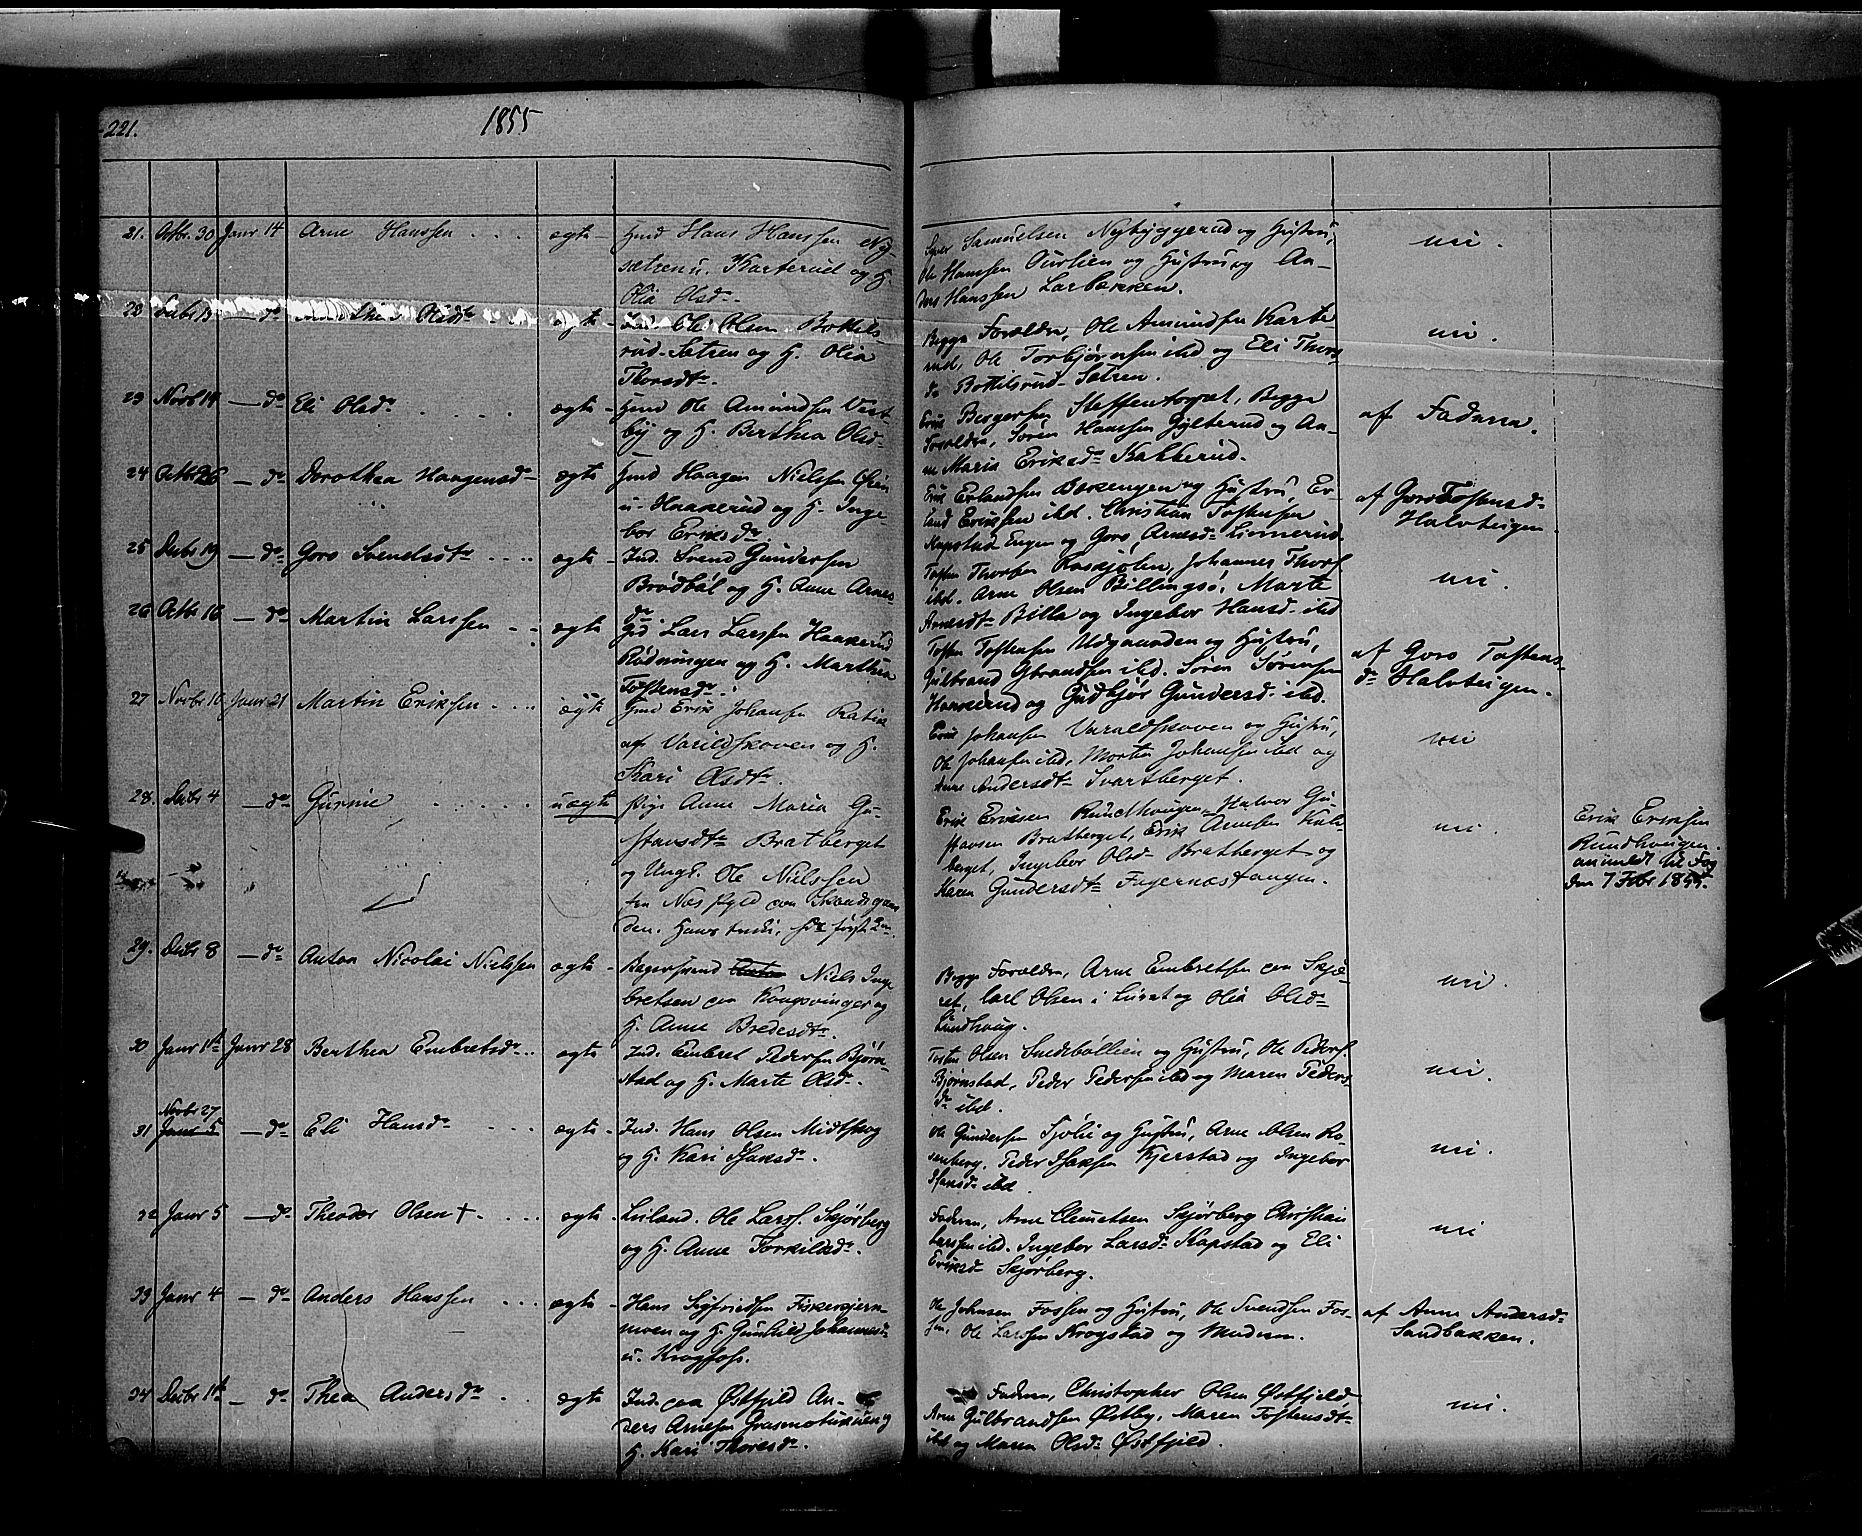 221.
1855
21. Octbr. 30 Janr 14 Arne Hanssen ægte Gmd Hans Hanssen Ny-
sætren u. Karterud og H.
Olia Olsd.
Samuelsen Nybyggerud og Hustru,
Ole Hanssen Aurlien og Hustru og An-
ders Hanssen Larbakken.
ui.
22 Decbr 13 — do Olsdtr ægte Ind. Ole Olsen Bottils-
rud-Sætren og H. Olia
Thorsdtr.
Begge Forældre, Ole Amundsen Karte
rud, Ole Torbjørnsen ibd og Eli Thors-
dr Bottilsrud-Sætren.
ui.
23 Novbr 14 — do Eli Olsdr ægte Gmd Ole Amundsen Vest-
by og H. Berthea Olsd.
Berger­sen Steffentorpet, Begge
Forældre, Søren Hanssen Gylterud og An-
ne Maria Eriksdr Kabberud.
af Faderen.
24 Octbr 26 — do Dorothea Haagensd. ægte Gmd Haagen Nielssen
u. Haakerud og H. Inge-
bor Eriksdr
Erik Erlandsen og Hustru, Er-
land Erikssen ibd. Christian Tostensen
Kapstad Engen og Goro Arnesd. Linnerud.
af Goro Tostensd.
Halvteigen
25 Decbr 19 — do Goro Svendsdtr ægte Ind. Svend Gundersen
Brødbøl og H. Anne Arnes-
dr
Tosten Thorsen Roskjølen, Johannes Thors.
ibd. Arne Olsen Billingsø, Marte
Arnesdtr Billa og Ingebor Hansd. ibd
ui.
26 Octbr 16 — do Martin Larssen ægte Lars Larssen Haakerud
Rødningen og H. Marthea
Tostensdr.
Tosten Tostensen Udgaarden og Hustru,
Gulbrand Gbrandsen ibd. Søren Sørensen
Haakerud og Gudbjør Gundersd. ibd.
af Goro Tostens-
dr Halvteigen.
27 Novbr 10 Janr 21 Martin Eriksen ægte Gmd Erik Johansen
af Varildskoven og H.
Kari Olsdtr.
Erik Johansen Varaldskoven og Hustru,
Ole Johansen ibd, Morten Johansen ibd og
Anne Andersdtr Svartberget.
ui
28. Decbr 4 — do Gunnie uægte Pige Anne Maria Gu-
stavsdtr Bratberget
og Ungk. Ole Nielssen
fra Næs
den. Hans
Erik Eriksen Rundhougen, Halvor Gu-
stavsen Bratberget, Erik Arnesen Kal-
berget, Ingebor Olsd. Bratberget og
Karen Gundersdtr Fagernæstangen.
ui.
Erik Eriksen
Rundhougen.
anmeldt til Fog
den 7 Febr 1855.
29. Decbr 8 — do Anton Nicolai Nielssen ægte Bagersvend Anton Niels Inge
bretsen paa Kongsvinger og
H. Anne Bredesdtr.
Begge Forældre, Arne Embretsen paa Skjø-
ret, Carl Olsen i Luret og Olia Olsdtr
Lundhoug.
ui.
30 Janr 1st Janr 28 Berthea Embretsdr ægte Ind. Embret Pedersen Bjørn-
stad og H. Marte Olsd.
Tosten Olsen Snedbøllien og Hustru, Ole Peders.
Bjørnstad, Peder Pedersen ibd og Maren Peders-
dr ibd.
ui.
31 Novbr 27 Janr 5 — do Eli Hansdr ægte Ind. Hans Olsen Midtskog
og H. Kari Isaksdr.
Ole Gundersen Sjølie og Hustru, Arne Olsen Ro-
senberg, Peder Isaksen Kjerstad og Ingebor
Hansd. ibd
ui.
32 Janr 5 — do Theodor Olsen + ægte Leiland. Ole Larss. Skjørberg
og H. Anne Torkildsdr.
Faderen, Arne Clemetsen Skjørberg Christian
Larssen ibd. Ingebor Larsdr Kapstad og Eli
Eriksd Skjørberg.
ui
33 Janr 4 — do Anders Hanssen ægte Hans Sigfridsen Fiskersjern-
moen og H. Gunhild Johannesd.
u. Krogfoss.
Ole Johnsen Fossen og Hustru, Ole Svendsen Fos-
sen, Ole Larssen Krogstad og Moderen.
af Anne Andersd.
Sandbakken.
34 Decbr 1st — do Thea Andersdr ægte Ind. paa Østfjeld An-
ders Arnesen Grasmotunien og
H. Kari Thoresdr.
Faderen, Christopher Olsen Østfjeld,
Arne Gulbrandsen Østby, Maren Tostensdtr
ibd og Maren Olsdr Østfjeld.
ui.